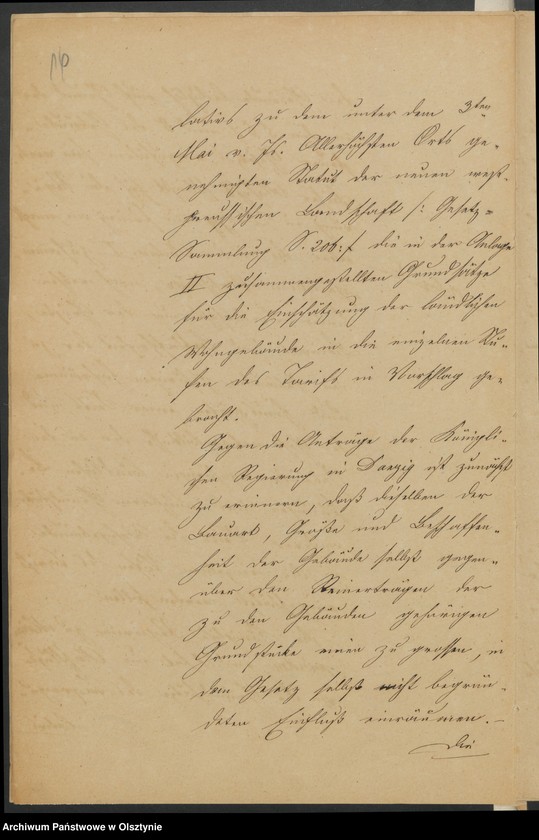 lativs zu dem unter dem 3ten
Mai v. Js. Allerhöchsten Orts ge-
nehmigten Statut der neuen west-
preussischen Landschaft /: Gesetz-
Sammlung S. 206 :/ die in der Anlage
II zusammengestellten Grundsätze
für die Einschätzung der ländlichen
Wohngebäude in die einzelnen Stu-
fen des Tarifs in Vorschlag ge-
bracht.
Gegen die Anträge der Königli-
chen Regierung in Danzig ist zunächst
zu erinnern, daß dieselben der
Bauart, Größe und Beschaffen-
heit der Gebäude selbst gegen-
über den Reinerträgen der
zu den Gebäuden gehörigen
Grundstücke einen zu grossen, in
dem Gesetz selbst nicht begrün-
deten Einfluß einräumen.-
Die
Archiwum Państwowe w Olsztynie